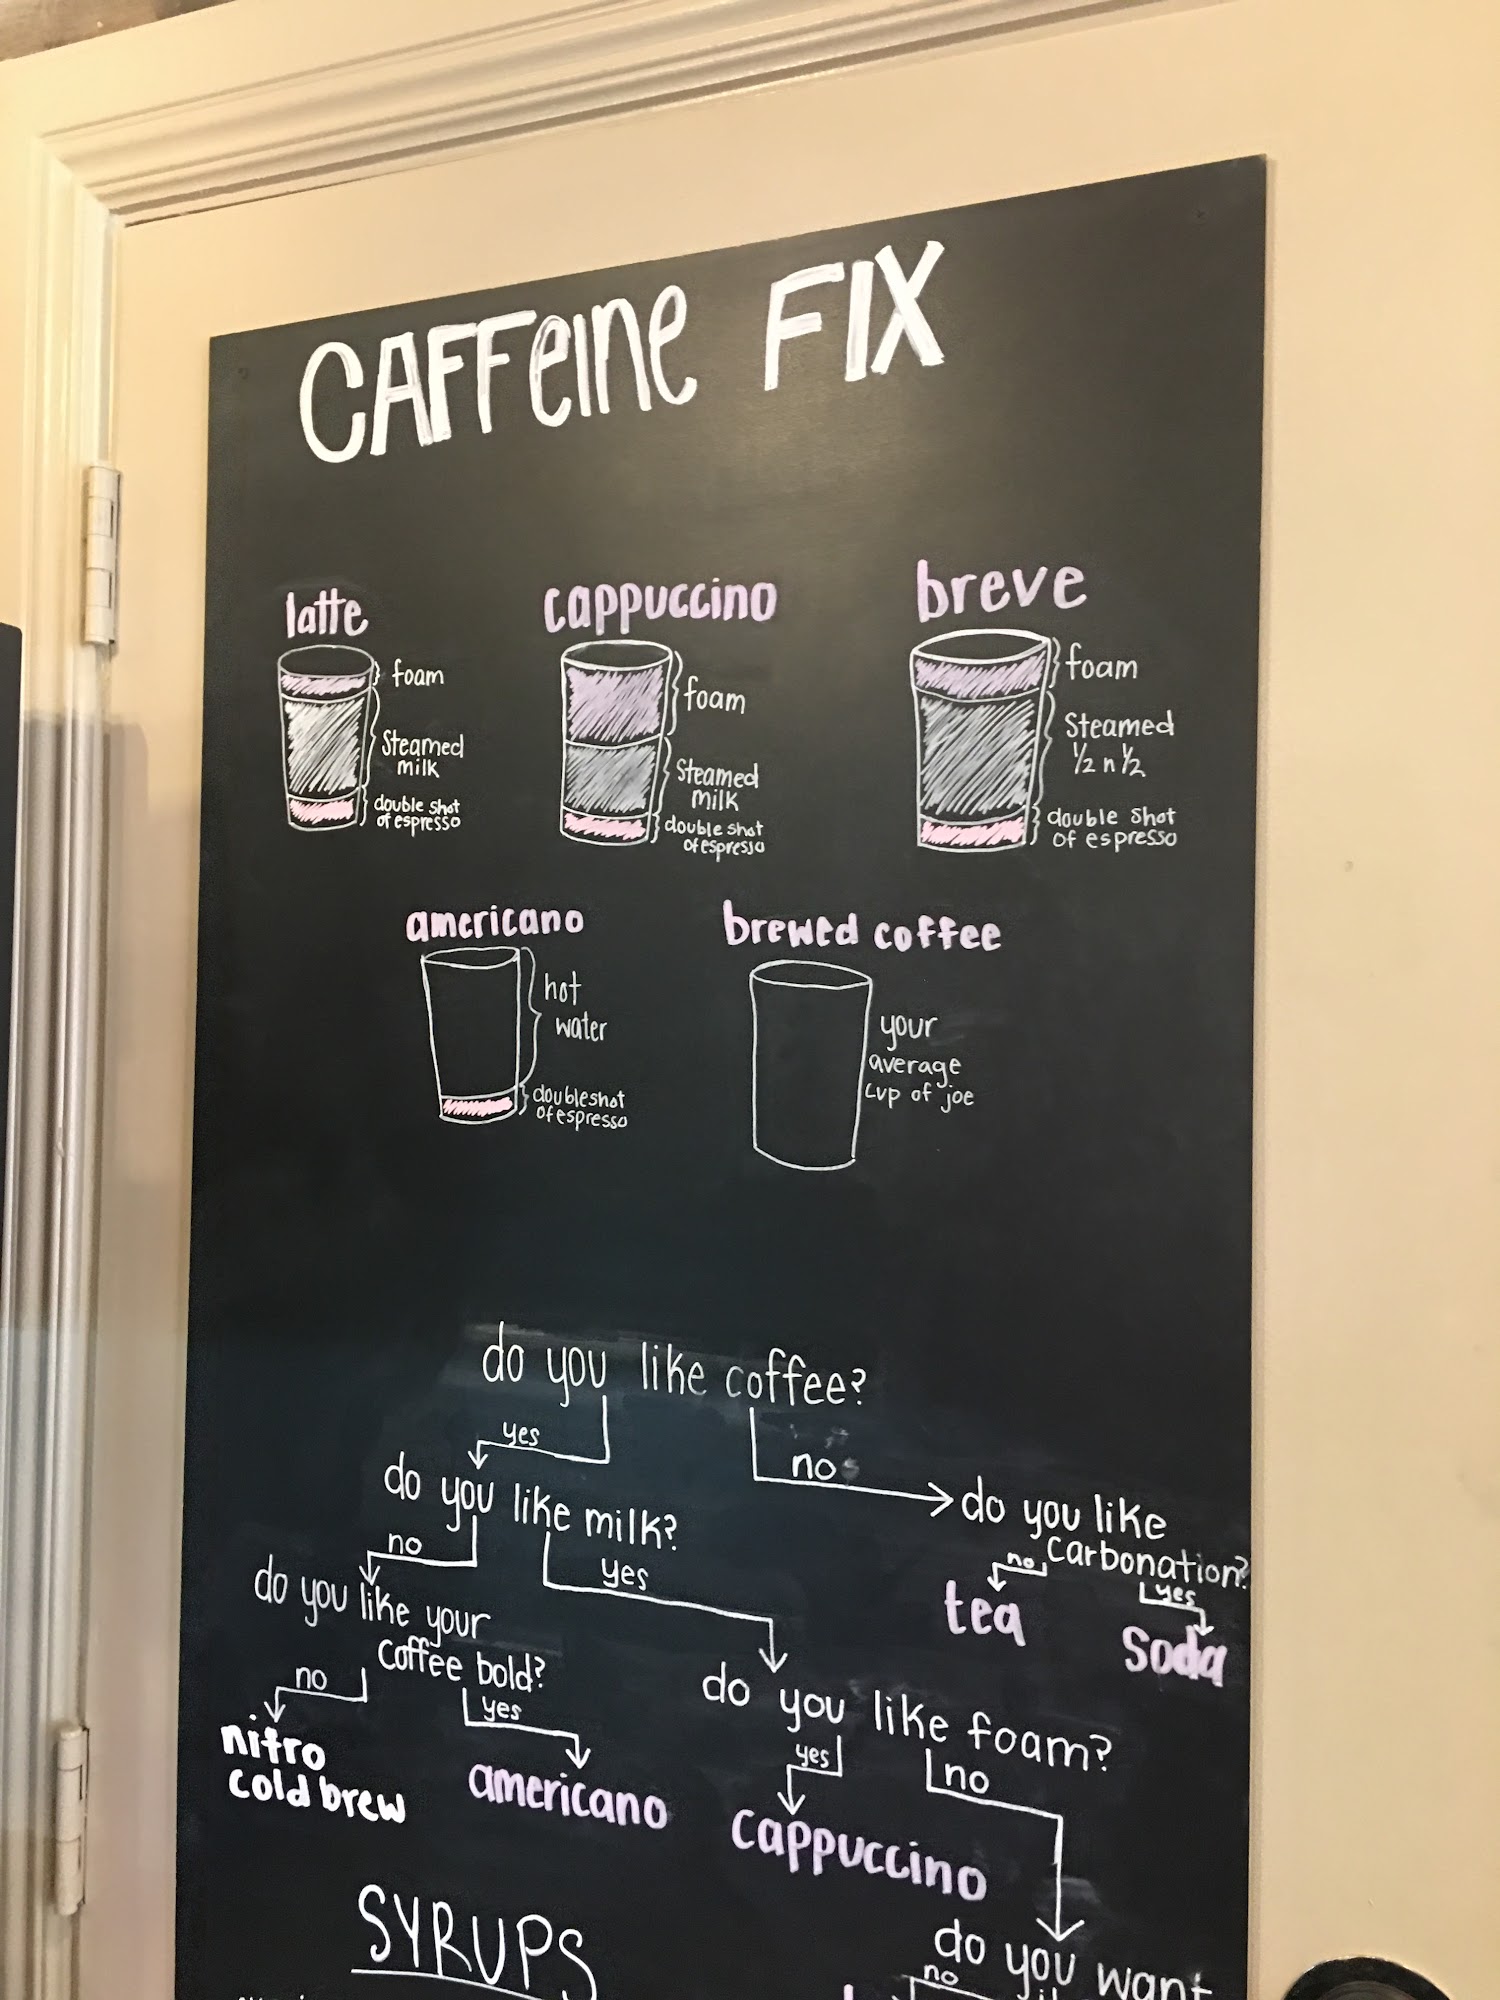 CAFFeine FIX
latte
foam
Steamed
milk
double shot
of espresso
cappuccino
foam
Steamed
milk
double shot
of espresso
breve
foam
Steamed
½ n ½
double shot
of espresso
americano
hot
water
double shot
of espresso
brewed coffee
your
average
cup of joe
do you like coffee?
yes
no
do you like milk?
no
yes
do you like
carbonation?
no
yes
tea
soda
do you like your
coffee bold?
no
yes
nitro
cold brew
americano
do you like foam?
yes
no
cappuccino
do you want
no
SYRUPS